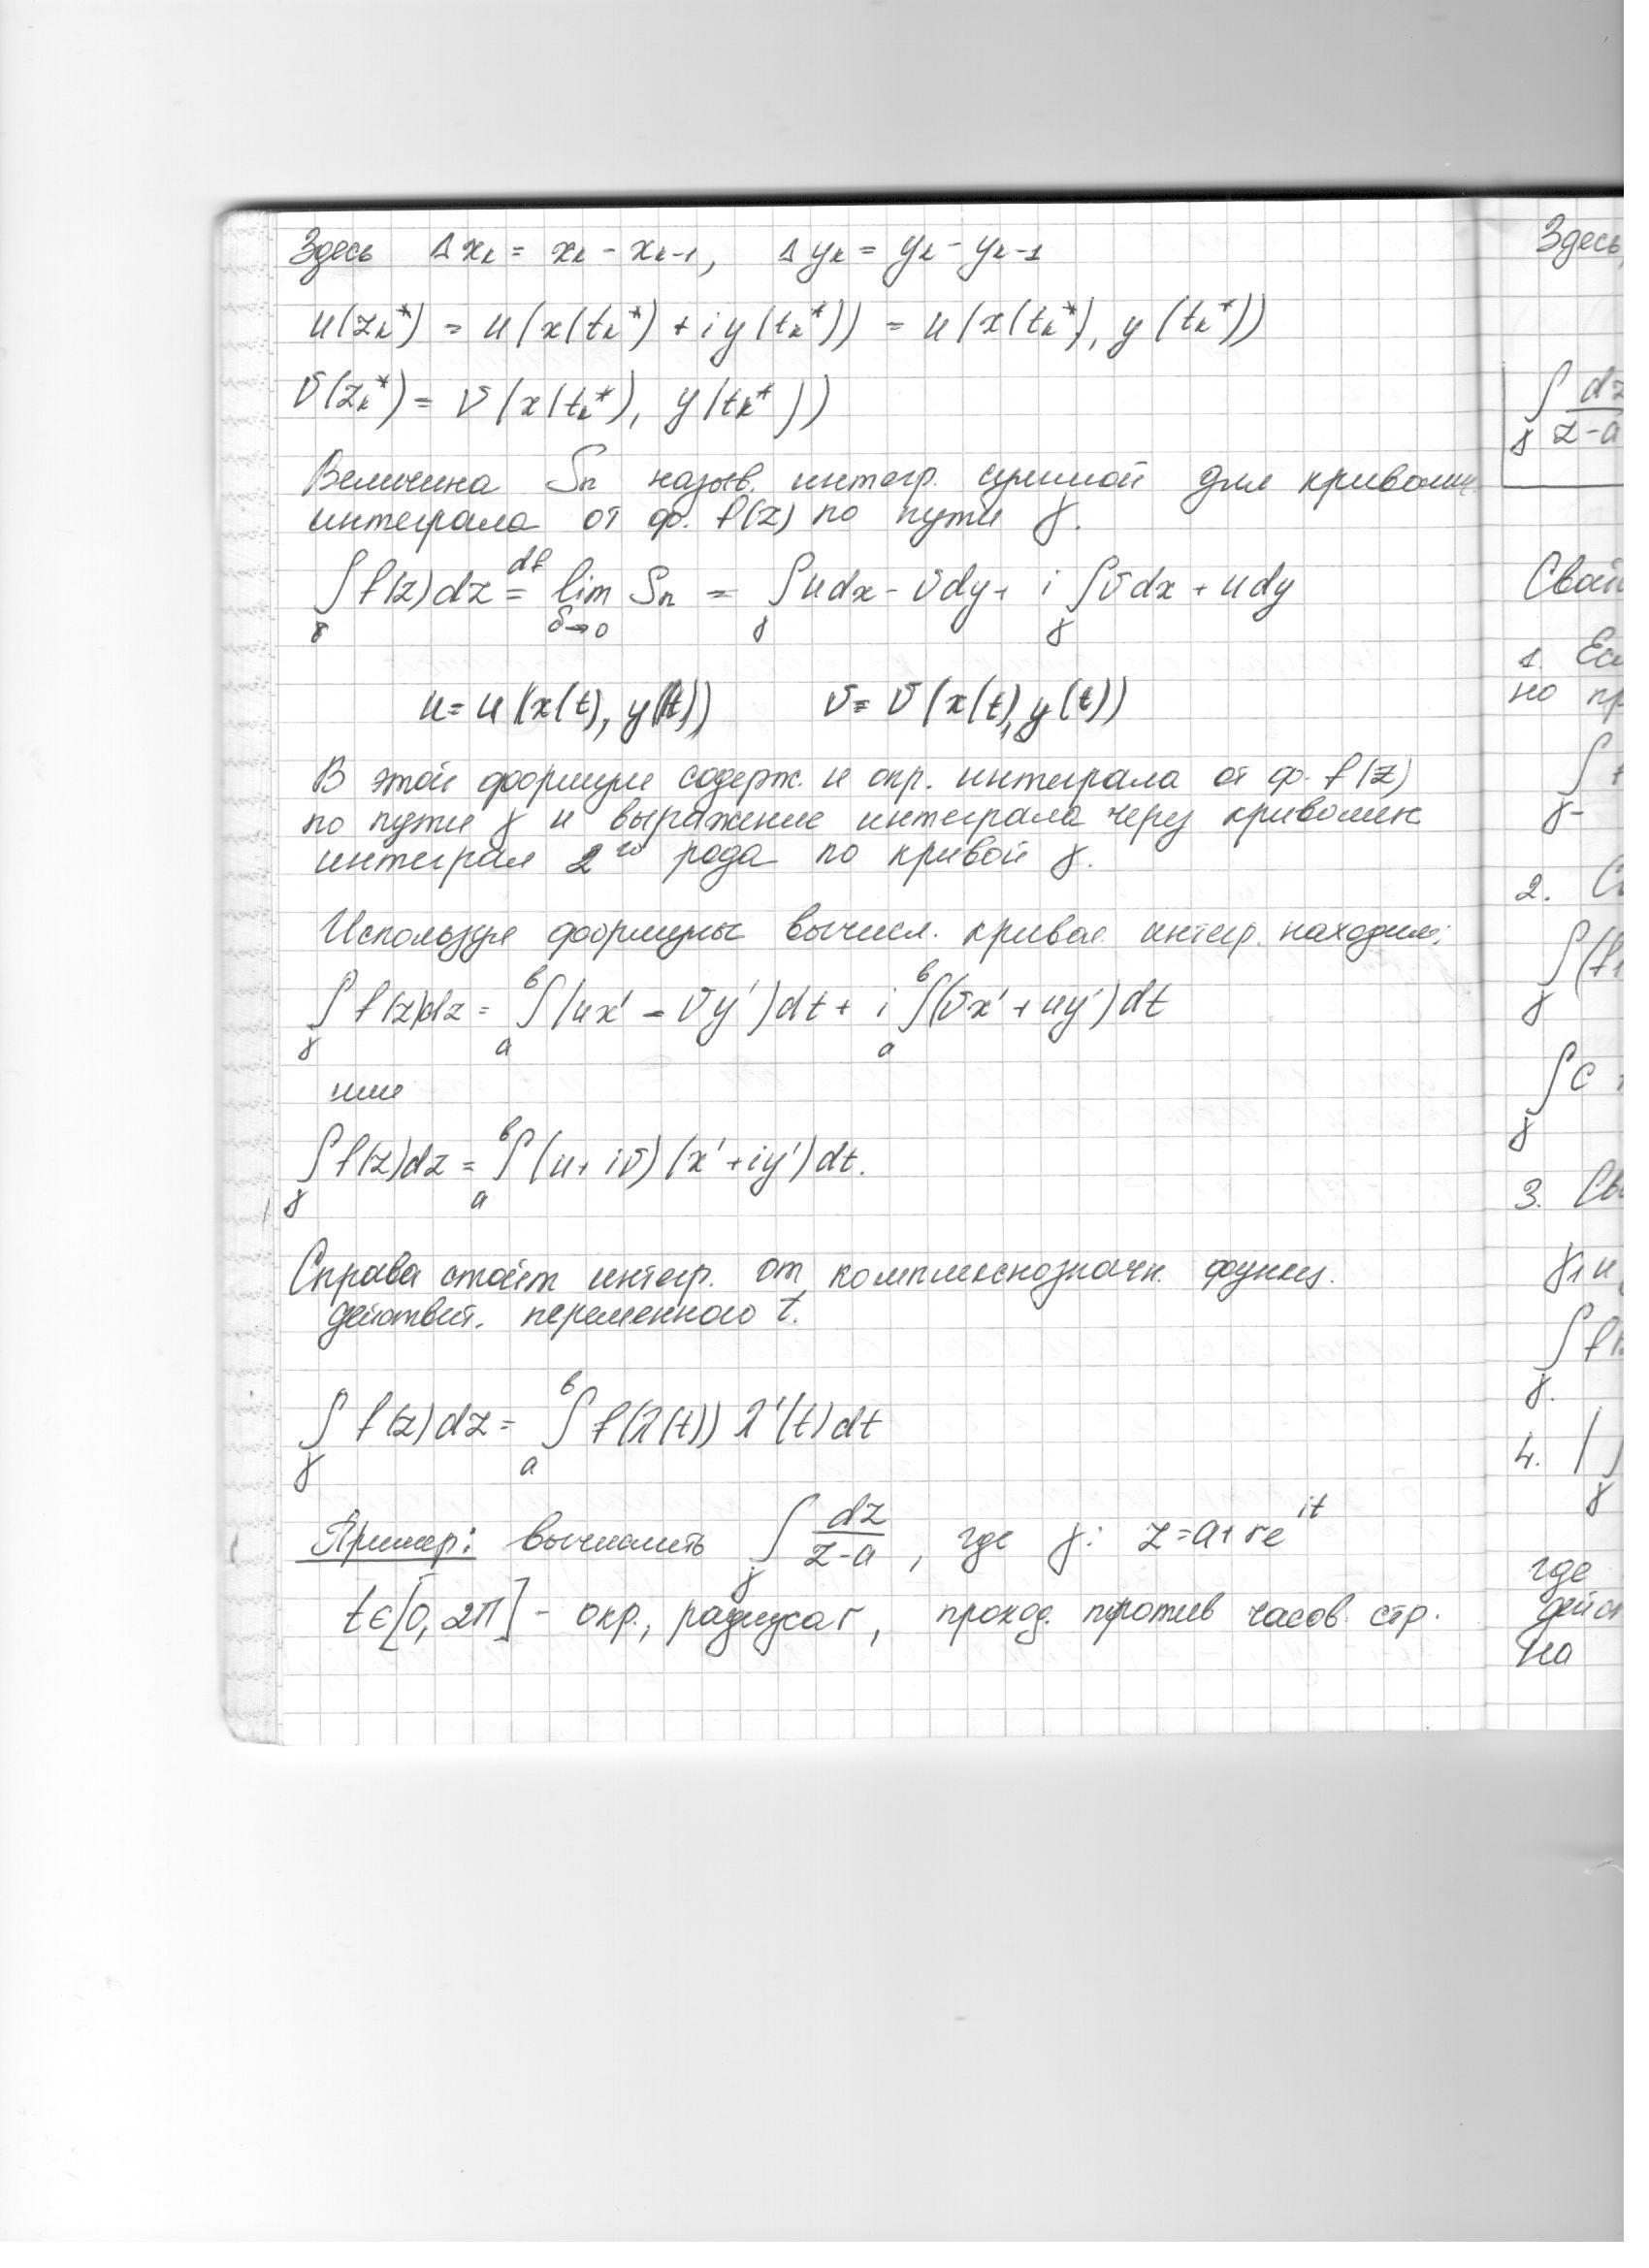 Здесь Δxₖ = xₖ - xₖ₋₁, Δyₖ = yₖ - yₖ₋₁
u(zₖ*) = u(x(tₖ*) + iy(tₖ*)) = u(x(tₖ*), y(tₖ*))
v(zₖ*) = v(x(tₖ*), y(tₖ*))
Величина Sₙ назыв. интегр. суммой для криволин.
интеграла от ф. f(z) по пути γ.
∫γ f(z)dz =df lim δ→0 Sₙ = ∫γ udx - vdy + i ∫γ vdx + udy
u = u(x(t), y(t)) v = v(x(t), y(t))
В этой формуле содерж. и опр. интеграла от ф. f(z)
по пути γ и выражение интеграла через криволин
интеграл 2го рода по кривой γ.
Используя формулы вычисл. кривол. интегр. находим:
∫γ f(z)dz = ₐ∫ᵇ (ux' - vy')dt + i ₐ∫ᵇ (vx' + uy')dt
или
∫γ f(z)dz = ₐ∫ᵇ (u + iv)(x' + iy')dt.
Справа стоит интегр. от комплекснозначн. функц.
действит. переменного t.
∫γ f(z)dz = ₐ∫ᵇ f(λ(t)) λ'(t)dt
Пример: вычислить ∫γ dz/(z-a), где γ: z = a + reⁱᵗ
t∈[0, 2π] - окр., радиуса r, проход. против часов. стр.
Здесь,
∫γ dz/z-a
1.
но пр
∫
γ-
2.
∫γ (f₁
∫γ c
3.
γ₁ и
∫γ f
4. |∫γ
где
дейст
на